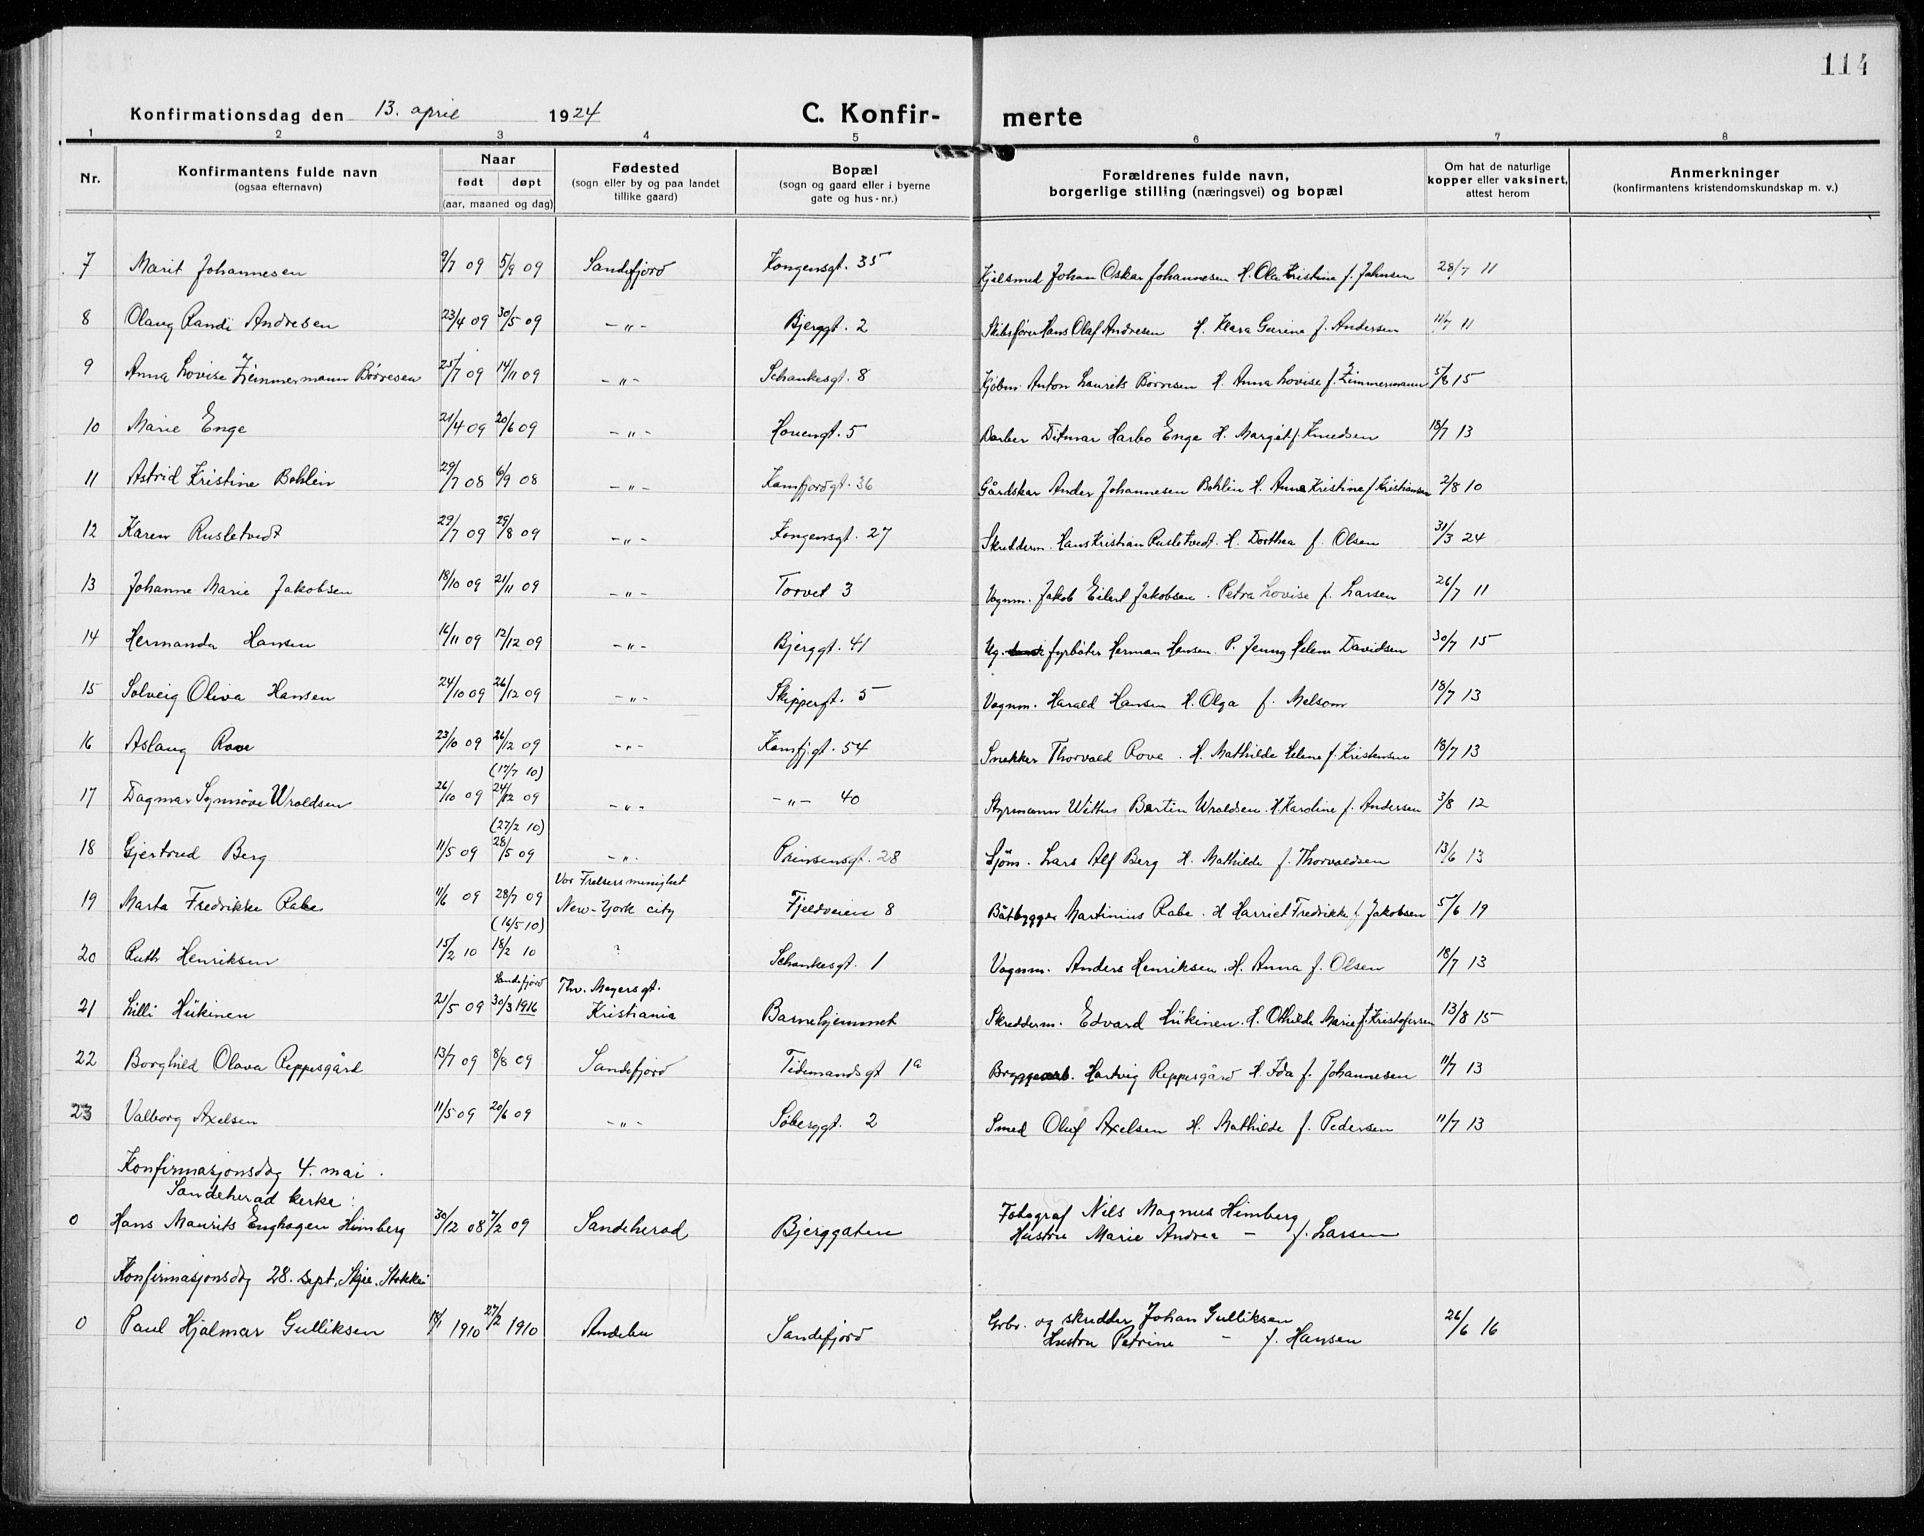 114
Konfirmationsdag den 13. april 1924 C. Konfir- merte
1 2 3 4 5 6 7 8
Nr. Konfirmantens fulde navn (ogsaa efternavn) Naar født døpt (aar, maaned og dag) Fødested (sogn eller by og paa landet tillike gaard) Bopæl (sogn og gaard eller i byerne gate og hus-nr.) Forældrenes fulde navn, borgerlige stilling (næringsvei) og bopæl Om hat de naturlige kopper eller vaksinert, attest herom Anmerkninger (konfirmantens kristendomskundskap m. v.)
7 Marit Johannesen 9/7 09 5/9 09 Sandefjord Kongensgt. 35 Johan Oskar Johannesen H. Ola Kristine f. Johnsen 28/7 11
8 Olaug Randi Andresen 23/4 09 30/5 09 -"- Bjerggt. 2 Skibsfører Hans Olaf Andresen H. Klara Gurine f. Andersen 11/7 11
9 Anna Lovise Zimmermann Børresen 25/7 09 14/11 09 -"- Schankesgt. 8 Kjøbm. Anton Laurits Børresen H. Anna Lovise f. Zimmermann 5/8 15
10 Marie Enge 21/4 09 20/6 09 -"- Houengt. 5 Barber Ditmar Harbo Enge H. Margit f. Knudsen 18/7 13
11 Astrid Kristine Bohlin 29/7 08 6/9 08 -"- Kamfjordgt. 36 Gårdskar Ander Johannesen Bohlin H. Anna Kristine f. Kristiansen 2/8 10
12 Karen Rusletvedt 29/7 09 29/8 09 -"- Kongensgt. 27 Skredderm. Hans Kristian Rusletvedt. H. Dorthea f. Olsen 31/3 24
13 Johanne Marie Jakobsen 18/10 09 21/11 09 -"- Torvet 3 Vognm. Jakob Eilert Jakobsen. Petra Lovise f. Larsen 26/7 11
14 Hermanda Hansen 16/11 09 12/12 09 -"- Bjerggt. 41 Ug. fyrbøter Herman Hansen. P. Jenny Helene Davidsen 30/7 15
15 Solveig Oliva Hansen 24/10 09 26/12 09 -"- Skippergt. 5 Vognm. Harald Hansen H. Olga f. Melsom 18/7 13
16 Aslaug Rove 23/10 09 26/12 09 -"- Kamfjgt. 54 Snekker Thorvald Rove. H. Mathilde Helene f. Kristensen 18/7 13
(17/7 10)
17 Dagmar Synnøve Wroldsen 26/10 09 24/12 09 -"- -"- 40 Styrmann Bertin Wroldsen. H Karoline f. Andersen 3/8 12
(27/2 10)
18 Gjertrud Berg 11/5 09 28/5 09 -"- Prinsensgt. 28 Sjøm. Lars Alf Berg H. Mathilde f. Thorvaldsen 13/6 13
Vor Frelsers menighet
19 Marta Fredrikke Rabe 11/6 09 28/7 09 New-York city Fjeldveien 8 Båtbygger Martinius Rabe. H Harriet Fredrikke f. Jakobsen 5/6 19
(16/5 10)
20 Ruth Henriksen 15/2 10 18/2 10 ? Schankesgt. 1 Vognm. Anders Henriksen. H. Anna f. Olsen 18/7 13
Sandefjord Thv. Meyersgt.
21 Lilli Hükinen 21/5 09 30/3 1916 Kristiania Barnehjemmet Skredderm. Edvard Hükinen. H. Othilde Marie f. Kristofersen 13/8 15
22 Borghild Olava Reppesgård 13/7 09 8/8 09 Sandefjord Tidemandsgt 1a Bryggearb. Hartvig Reppesgård H. Ida f. Johannesen 11/7 13
23 Valborg Axelsen 11/5 09 20/6 09 -"- Søberggt. 2 Smed Oluf Axelsen H. Mathilde f. Pedersen 11/7 13
Konfirmasjonsdag 4. mai.
Sandeherad kerke:
0 Hans Maurits Enghagen Himberg 30/12 08 7/2 09 Sandeherad Bjerggaten Fotograf Nils Magnus Himberg
Hustru Marie Andrea - f. Larsen
Konfirmasjonsdag 28. sept. Skjee. Stokke:
0 Paul Hjalmar Gulliksen 18/1 1910 27/2 1910 Andebu Sandefjord Grbr. og skredder Johan Gulliksen 26/6 16
Hustru Petrine - f. Hansen